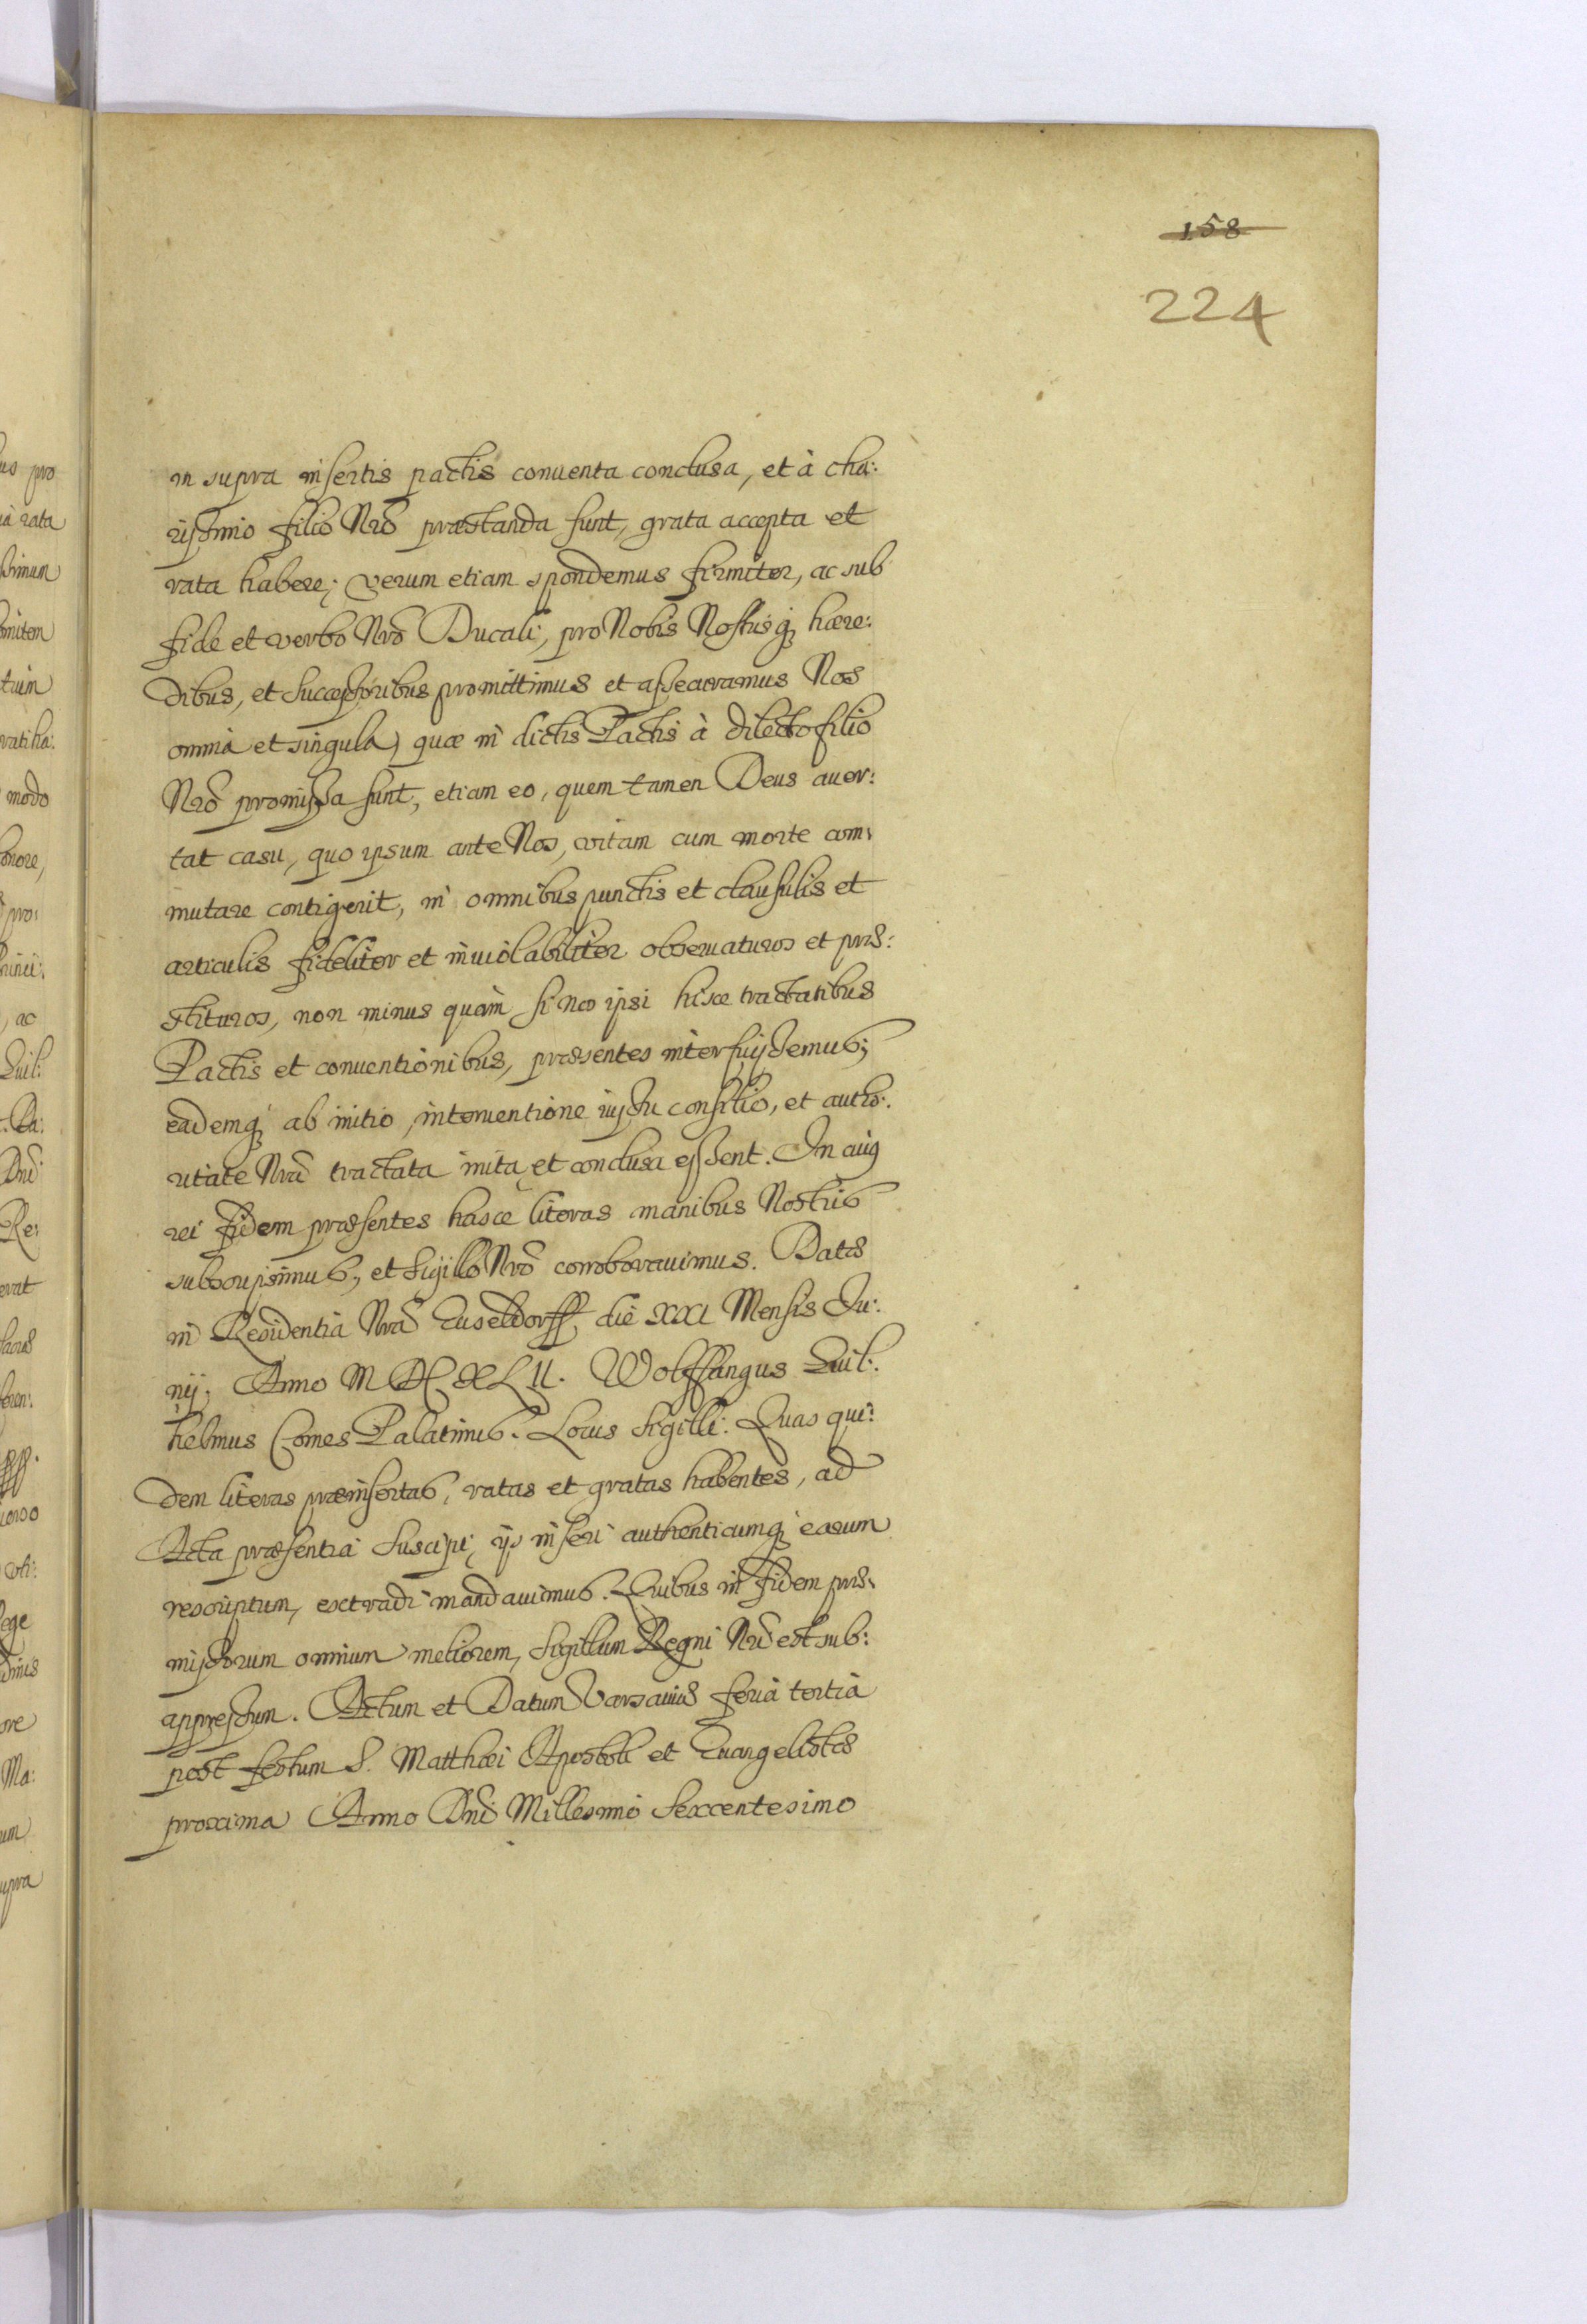 158
224
in supra insertis pactis conuenta conclusa, et à cha:
rissimo filio Nrō præstanda sunt, grata accepta et
rata habere; verum etiam spondemus firmiter, ac sub
fide et verbo Nrō Ducali, pro Nobis Nostrisq; hære:
dibus, et successoribus promittimus et assecuramus Nos
omnia et singula, quæ in dictis Pactis à dilecto filio
Nrō promissa sunt, etiam eo, quem tamen Deus auer:
tat casu, quo ipsum ante Nos, vitam cum morte com:
mutare contigerit, in omnibus punctis et clausulis et
articulis fideliter et inuiolabiliter obseruaturos et præ:
stituros, non minus quàm si nos ipsi hisce tractatibus
Pactis et conuentionibus, præsentes interfuissemus;
eademq; ab initio, interuentione iussu consilio, et autho:
ritate Nrā tractata inita et conclusa essent. In cuiꝯ
rei fidem præsentes hasce literas manibus Nostris
subscripsimus, et Sigillo Nrō corroborauimus. Datæ
in Residentia Nrā Duseldorff, die XXI Mensis Ju:
nij. Anno MDCXLII. Wolffangus Guil:
helmus Comes Palatinus. Locus Sigilli: Quas qui:
dem literas præinsertas, ratas et gratas habentes, ad
Acta præsentia suscipi, ijs inseri authenticumq; earum
rescriptum, extradi mandauimus. Quibus in fidem præ:
missorum omnium meliorem, Sigillum Regni Nrī est sub:
appressum. Actum et Datum Varsauiæ feria tertia
post festum S. Matthæi Apostoli et Euangelistæ
proxima Anno Dnī Millesimo Sexcentesimo